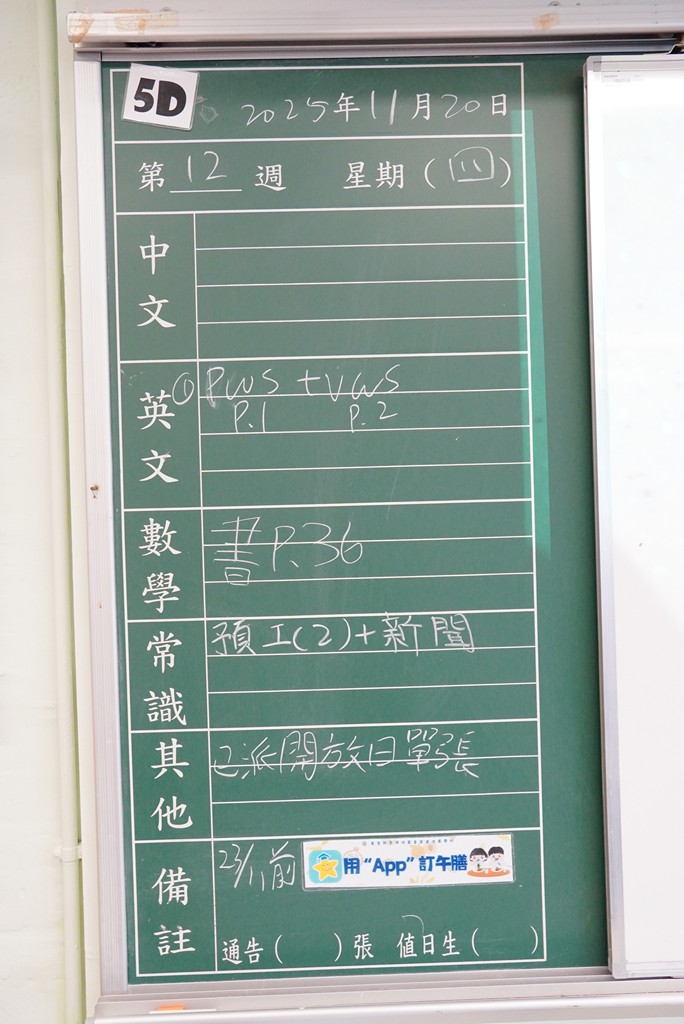 5D
2025年11月20日
第12週 星期(四)
中文
英文 ① PWS + VWS
P.1 P.2
數學 書P.36
常識 預工(2)+新聞
其他 已派開放日單張
備註 23/11前 用“App”訂午膳
通告( )張 值日生( )